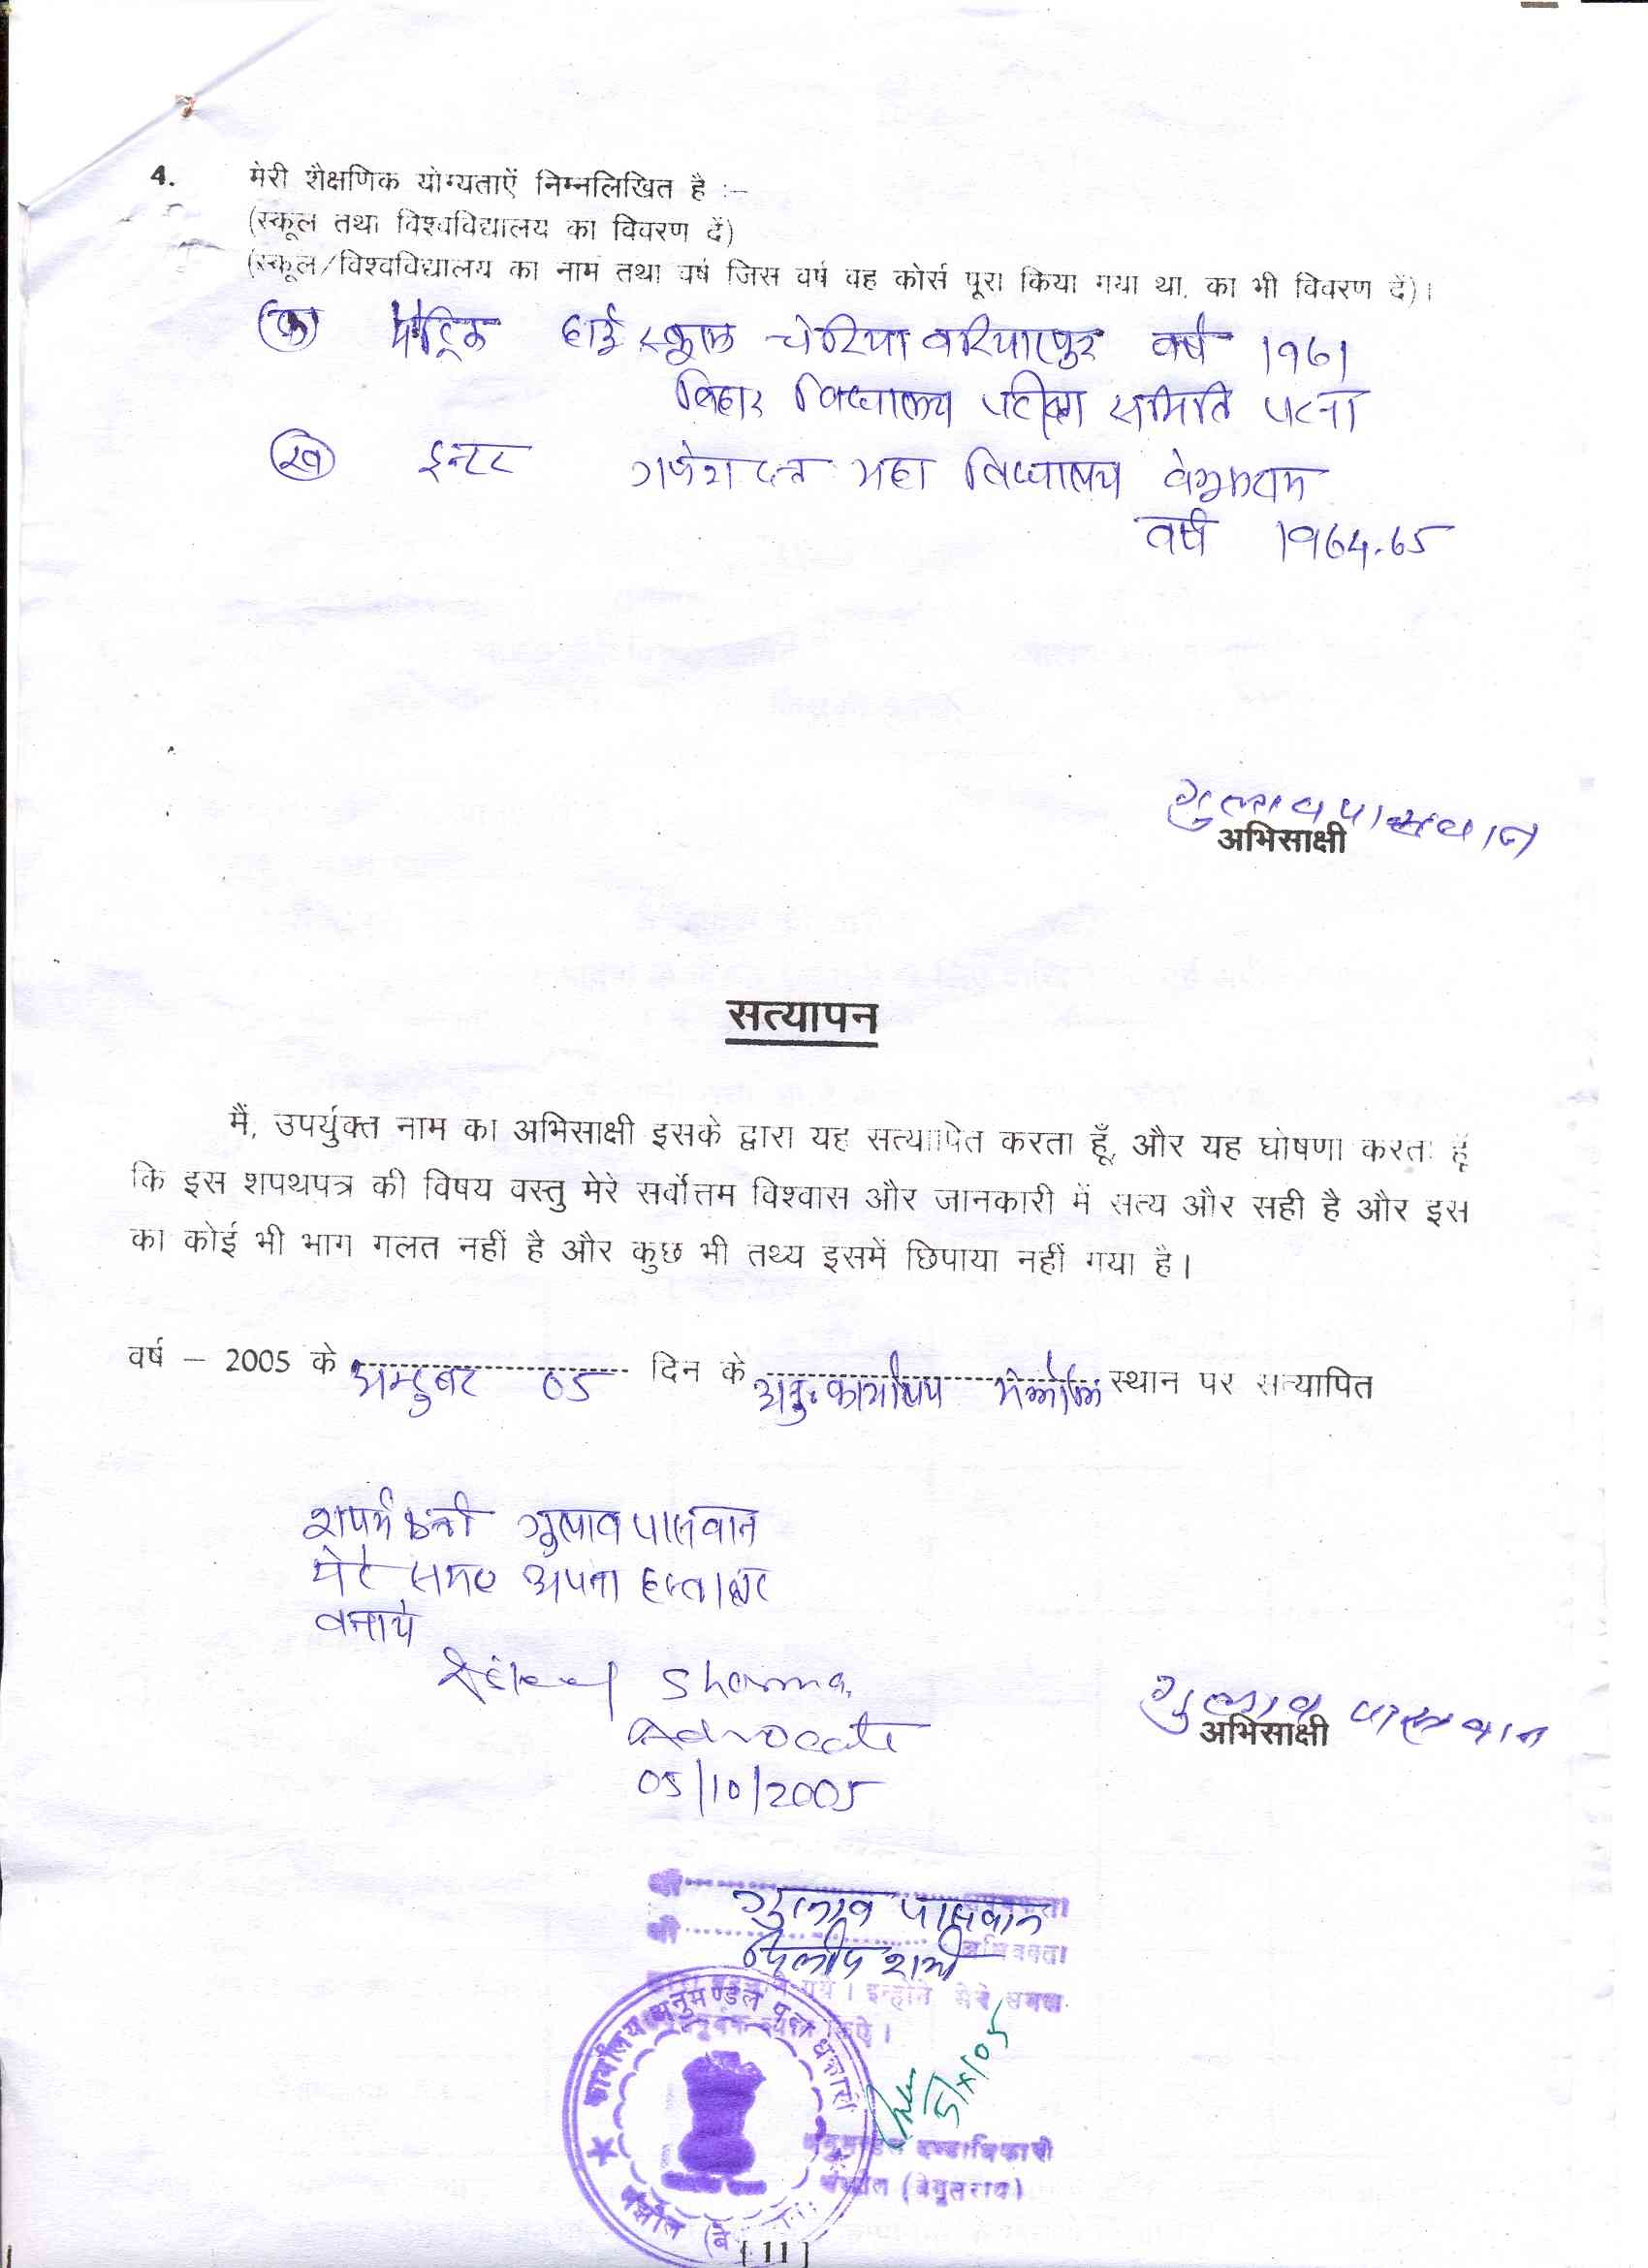 4. मेरी शैक्षणिक योग्यताऐं निम्नलिखित है :–
(स्कूल तथा विश्वविद्यालय का विवरण दें)
(स्कूल/विश्वविद्यालय का नाम तथा वर्ष जिस वर्ष वह कोर्स पूरा किया गया था, का भी विवरण दें)।
(क) मैट्रिक हाई स्कूल चेरिया वरियारपुर वर्ष 1961
विहार विद्यालय परीक्षा समिति पटना
(ख) इन्टर गणेश दत्त महा विद्यालय
वर्ष 1964-65
गुलाव पासवान
अभिसाक्षी
सत्यापन
मैं, उपर्युक्त नाम का अभिसाक्षी इसके द्वारा यह सत्यापित करता हूँ, और यह घोषणा करता हूँ
कि इस शपथपत्र की विषय वस्तु मेरे सर्वोत्तम विश्वास और जानकारी में सत्य और सही है और इस
का कोई भी भाग गलत नहीं है और कुछ भी तथ्य इसमें छिपाया नहीं गया है।
वर्ष – 2005 के 05 दिन के स्थान पर सत्यापित
गुलाव पासवान
मेरे समक्ष अपना हस्ताक्षर
वनाये
Sharma,
Advocate
05/10/2005
गुलाव पासवान
अभिसाक्षी
श्री गुलाव पासवान
श्री दिलीप शर्मा अधिवक्ता
गये। इन्होंने मेरे समक्ष
5/X/05
कार्यालय अनुमण्डल
अनुमंडल दण्डाधिकारी
मंझौल (बेगूसराय)
मंझौल (बे
[ 11 ]